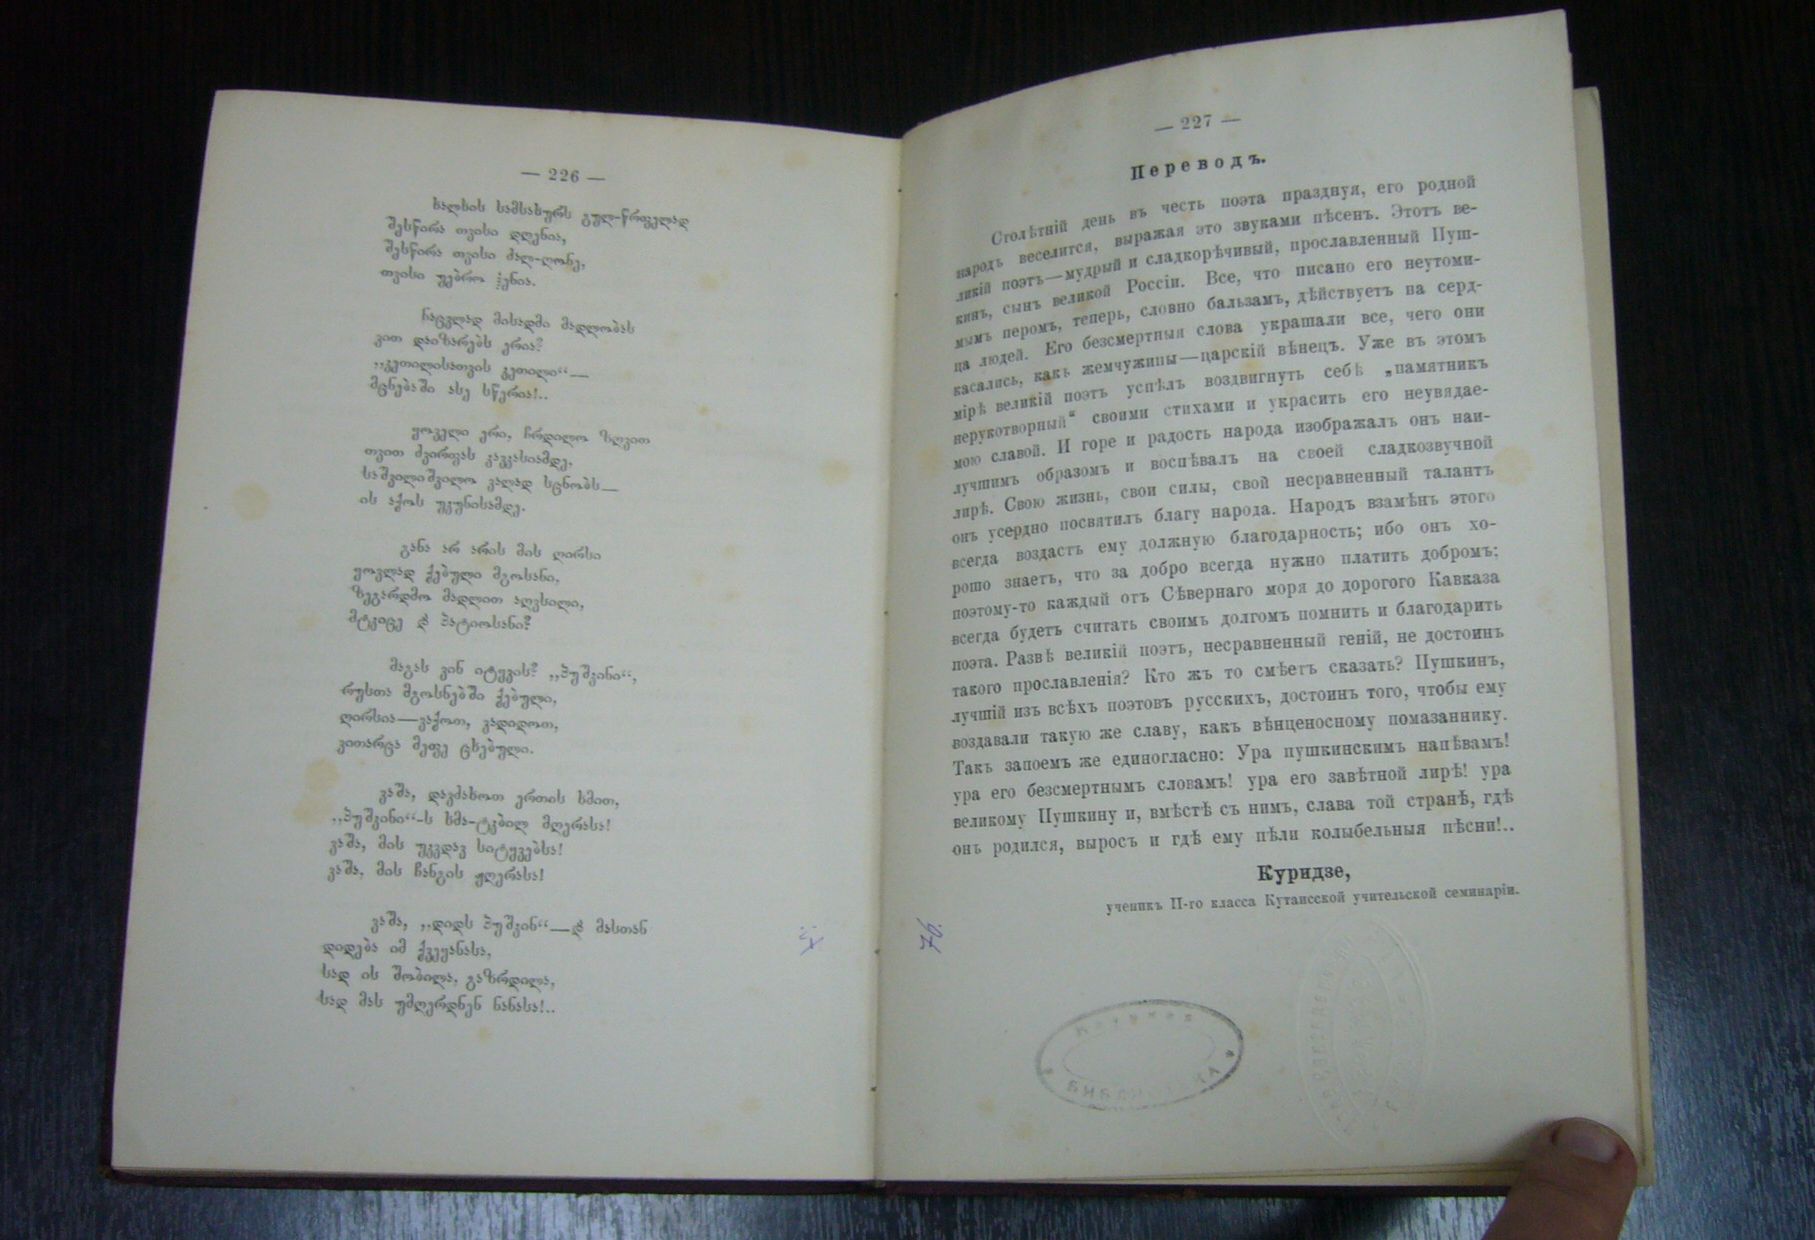 — 226 —
ხალხის სამსახურს გულ-წრფელად
შესწირა თვისი დღენია,
შესწირა თვისი ძალ-ღონე,
თვისი უებრო ჰენია.
ნაცვლად მისადმი მადლობას
ვით დაიზარებს ერია?
„კეთილისათვის კეთილი“—
მცნებაში ასე სწერია!..
ყოველი ერი, ჩრდილო ზღვით
თვით ძვირფას კავკასიამდე,
საშვილიშვილო ვალად სცნობს—
ის აქოს უკუნისამდე.
განა არ არის მის ღირსი
ყოვლად ქებული მგოსანი,
ზეგარდმო მადლით აღვსილი,
მტკიცე და პატიოსანი?
მაგას ვინ იტყვის? „პუშკინი“,
რუსთა მგოსნებში ქებული,
ღირსია—ვაქოთ, ვადიდოთ,
ვითარცა მეფე ცხებული.
ვაშა, დავძახოთ ერთის ხმით,
„პუშკინი“-ს ხმა-ტკბილ მღერასა!
ვაშა, მის უკვდავ სიტყვებსა!
ვაშა, მის ჩანგის ჟღერასა!
ვაშა, „დიდს პუშკინ“—და მასთან
დიდება იმ ქვეყანასა,
სად ის შობილა, გაზრდილა,
სად მას უმღერდნენ ნანასა!..
— 227 —
Переводъ.
Столѣтній день въ честь поэта празднуя, его родной
народъ веселится, выражая это звуками пѣсенъ. Этотъ ве-
ликій поэтъ—мудрый и сладкорѣчивый, прославленный Пуш-
кинъ, сынъ великой Россіи. Все, что писано его неутоми-
мымъ перомъ, теперь, словно бальзамъ, дѣйствуетъ на серд-
ца людей. Его безсмертныя слова украшали все, чего они
касались, какъ жемчужины—царскій вѣнецъ. Уже въ этомъ
мірѣ великій поэтъ успѣлъ воздвигнуть себѣ „памятникъ
нерукотворный“ своими стихами и украсить его неувядае-
мою славой. И горе и радость народа изображалъ онъ наи-
лучшимъ образомъ и воспѣвалъ на своей сладкозвучной
лирѣ. Свою жизнь, свои силы, свой несравненный талантъ
онъ усердно посвятилъ благу народа. Народъ взамѣнъ этого
всегда воздастъ ему должную благодарность; ибо онъ хо-
рошо знаетъ, что за добро всегда нужно платить добромъ;
поэтому-то каждый отъ Сѣвернаго моря до дорогого Кавказа
всегда будетъ считать своимъ долгомъ помнить и благодарить
поэта. Развѣ великій поэтъ, несравненный геній, не достоинъ
такого прославленія? Кто жъ то смѣетъ сказать? Пушкинъ,
лучшій изъ всѣхъ поэтовъ русскихъ, достоинъ того, чтобы ему
воздавали такую же славу, какъ вѣнценосному помазаннику.
Такъ запоемъ же единогласно: Ура пушкинскимъ напѣвамъ!
ура его безсмертнымъ словамъ! ура его завѣтной лирѣ! ура
великому Пушкину и, вмѣстѣ съ нимъ, слава той странѣ, гдѣ
онъ родился, выросъ и гдѣ ему пѣли колыбельныя пѣсни!..
Куридзе,
ученикъ II-го класса Кутаисской учительской семинаріи.